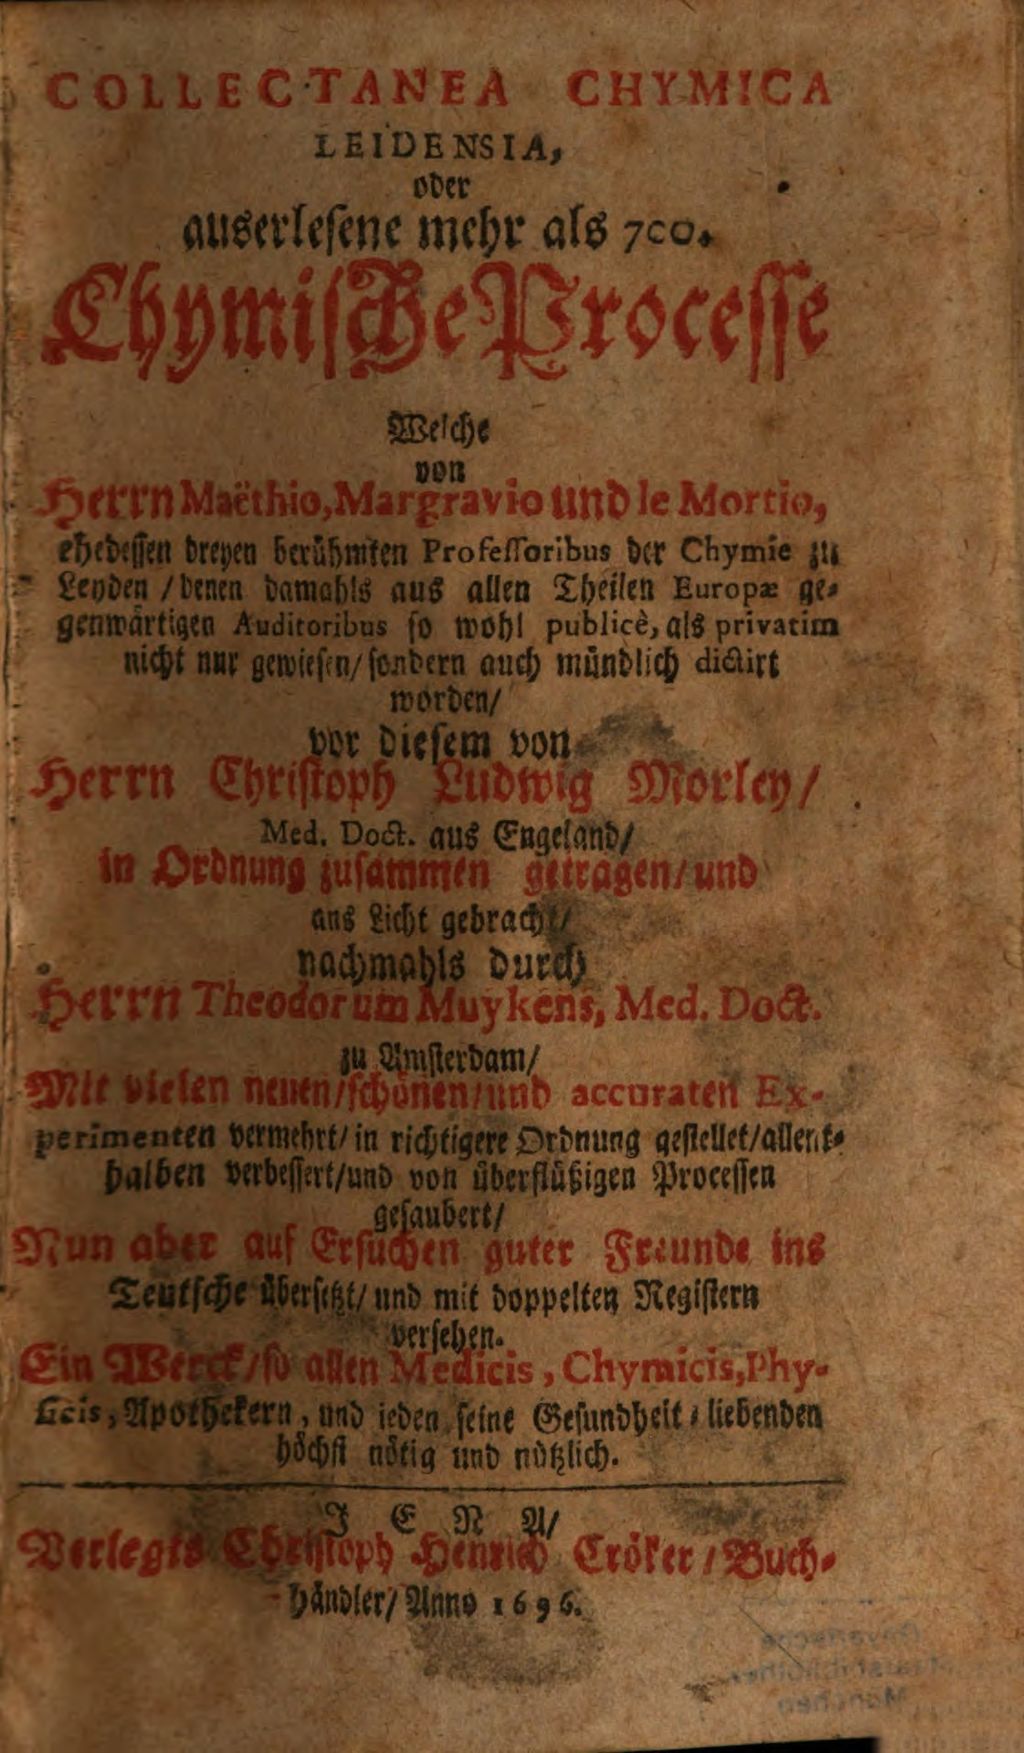 COLLECTANEA CHYMICA
LEIDENSIA,
oder
auserlesene mehr als 700.
Chymische Processe
Welche
von
Herrn Maëthio, Margravio und le Mortio,
ehedessen dreyen berühmten Professoribus der Chymie zu
Leyden / denen damahls aus allen Theilen Europæ ge-
genwärtigen Auditoribus so wohl publicè, als privatim
nicht nur gewiesen/ sondern auch mündlich dictirt
worden/
vor diesem von
Herrn Christoph Ludwig Morley/
Med. Doct. aus Engeland/
in Ordnung zusammen getragen/ und
ans Licht gebracht/
nachmahls durch
Herrn Theodorum Muykens, Med. Doct.
zu Amsterdam/
Mit vielen neuen/ schönen/ und accuraten Ex-
perimenten vermehrt/ in richtigere Ordnung gestellet/ allent-
halben verbessert/ und von überflüßigen Processen
gesaubert/
Nun aber auf Ersuchen guter Freunde ins
Teutsche übersetzt/ und mit doppelten Registern
versehen.
Ein Werck/ so allen Medicis, Chymicis, Phy-
sicis, Apothekern, und jeden seine Gesundheit-liebenden
höchst nötig und nützlich.
JENA/
Verlegts Christoph Henrich Cröker / Buch-
händler/ Anno 1696.
Bayerische
Staatsbibliothek
München